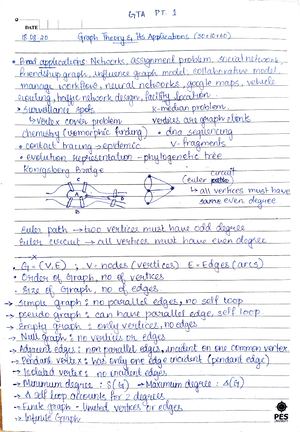 GTA PT. 1
DATE
18.08.20 Graph Theory & Its Applications (30+10+60)
• Broad applications: Networks, assignment problem, social network,
friendship graph, influence graph model, collaborative model,
manage workflow, neural networks, google maps, vehicle
routing, traffic network design, facility location.
• surveillance spots k-median problem.
↳ vertex cover problem vertices are graph
chemistry (isomorphic finding) • dna sequencing
• contact tracing → epidemic V- fragments
• evolution representation - phylogenetic tree
Konigsberg Bridge
A
B
C
D
(euler circuit
↳ all vertices must have
even degree
Euler path → two vertices must have odd degree
Euler circuit → all vertices must have even degree
x
• G = (V, E) ; V - nodes (vertices) E = Edges (arcs)
• Order of Graph, no of vertices
• Size of Graph, no of edges
→ simple graph : no parallel edges, no self loop
→ pseudo graph : can have parallel edge, self loop
→ Empty graph : only vertices, no edges
→ Null graph : no vertices or edges
→ Adjacent edges : non parallel edges, incident on one common vertex
→ Pendant vertex : has only one edge incident (pendant edge)
→ Isolated vertex : no incident edges
→ Minimum degree : δ(G) → Maximum degree : Δ(G)
→ A self loop accounts for 2 degrees
→ Finite graph - limited vertices or edges
→ Infinite Graph
PES